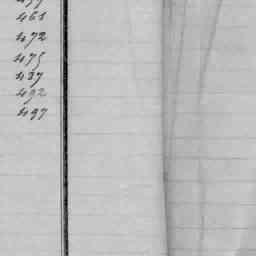 461
472
475
487
492
497